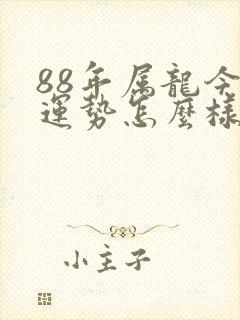 88年属龍今
運势怎麼樣
小主子